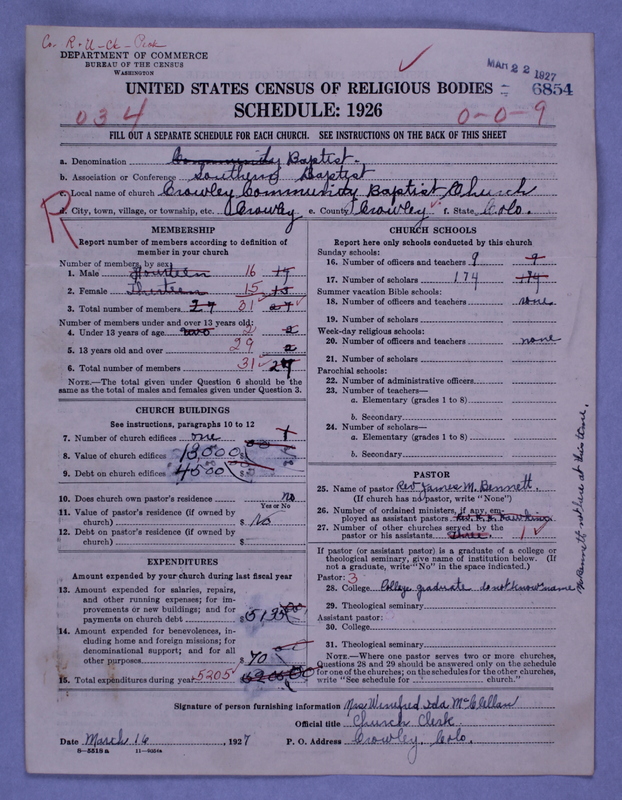 Co. R-U-Ch-
DEPARTMENT OF COMMERCE
BUREAU OF THE CENSUS
WASHINGTON
MAR 22 1927
6854
UNITED STATES CENSUS OF RELIGIOUS BODIES
034 SCHEDULE: 1926 0-0-9
FILL OUT A SEPARATE SCHEDULE FOR EACH CHURCH. SEE INSTRUCTIONS ON THE BACK OF THIS SHEET
a. Denomination Community Baptist.
b. Association or Conference Southern Baptist
c. Local name of church Crowley Community Baptist Church
R
d. City, town, village, or township, etc. Crowley e. County Crowley f. State Colo.
MEMBERSHIP
Report number of members according to definition of
member in your church
Number of members, by sex:
1. Male Fourteen 16 14
2. Female Thirteen 15 13
3. Total number of members 27 31 27
Number of members under and over 13 years old:
4. Under 13 years of age two 2 2
5. 13 years old and over 29
6. Total number of members 31 27
NOTE.—The total given under Question 6 should be the
same as the total of males and females given under Question 3.
CHURCH BUILDINGS
See instructions, paragraphs 10 to 12
7. Number of church edifices one 1
8. Value of church edifices $ 13,000
9. Debt on church edifices $ 4500
10. Does church own pastor's residence no
Yes or No
11. Value of pastor's residence (if owned by
church) $ No
12. Debt on pastor's residence (if owned by
church) $
EXPENDITURES
Amount expended by your church during last fiscal year
13. Amount expended for salaries, repairs,
and other running expenses; for im-
provements or new buildings; and for
payments on church debt $ 5135
14. Amount expended for benevolences, in-
cluding home and foreign missions; for
denominational support; and for all
other purposes $ 70
15. Total expenditures during year 5205 $
CHURCH SCHOOLS
Report here only schools conducted by this church
Sunday schools:
16. Number of officers and teachers 9 9
17. Number of scholars 174 174
Summer vacation Bible schools:
18. Number of officers and teachers none
19. Number of scholars
Week-day religious schools:
20. Number of officers and teachers none
21. Number of scholars
Parochial schools:
22. Number of administrative officers
23. Number of teachers—
a. Elementary (grades 1 to 8)
b. Secondary
24. Number of scholars—
a. Elementary (grades 1 to 8)
b. Secondary
PASTOR
25. Name of pastor Rev James M. Bennett.
(If church has no pastor, write "None")
26. Number of ordained ministers, if any, em-
ployed as assistant pastors Rev.
27. Number of other churches served by the
pastor or his assistants Three. 1
If pastor (or assistant pastor) is a graduate of a college or
theological seminary, give name of institution below. (If
not a graduate, write "No" in the space indicated.)
Pastor: 3
28. College College graduate do not know name
29. Theological seminary
Assistant pastor:
30. College
31. Theological seminary
NOTE.—Where one pastor serves two or more churches,
Questions 28 and 29 should be answered only on the schedule
for one of the churches; on the schedules for the other churches,
write "See schedule for church."
Mr Bennett not here at this time.
Signature of person furnishing information Mrs Winefred Ida McClellan
Official title Church Clerk
Date March 16, 1927 P. O. Address Crowley, Colo.
8-5518a 11-9354a